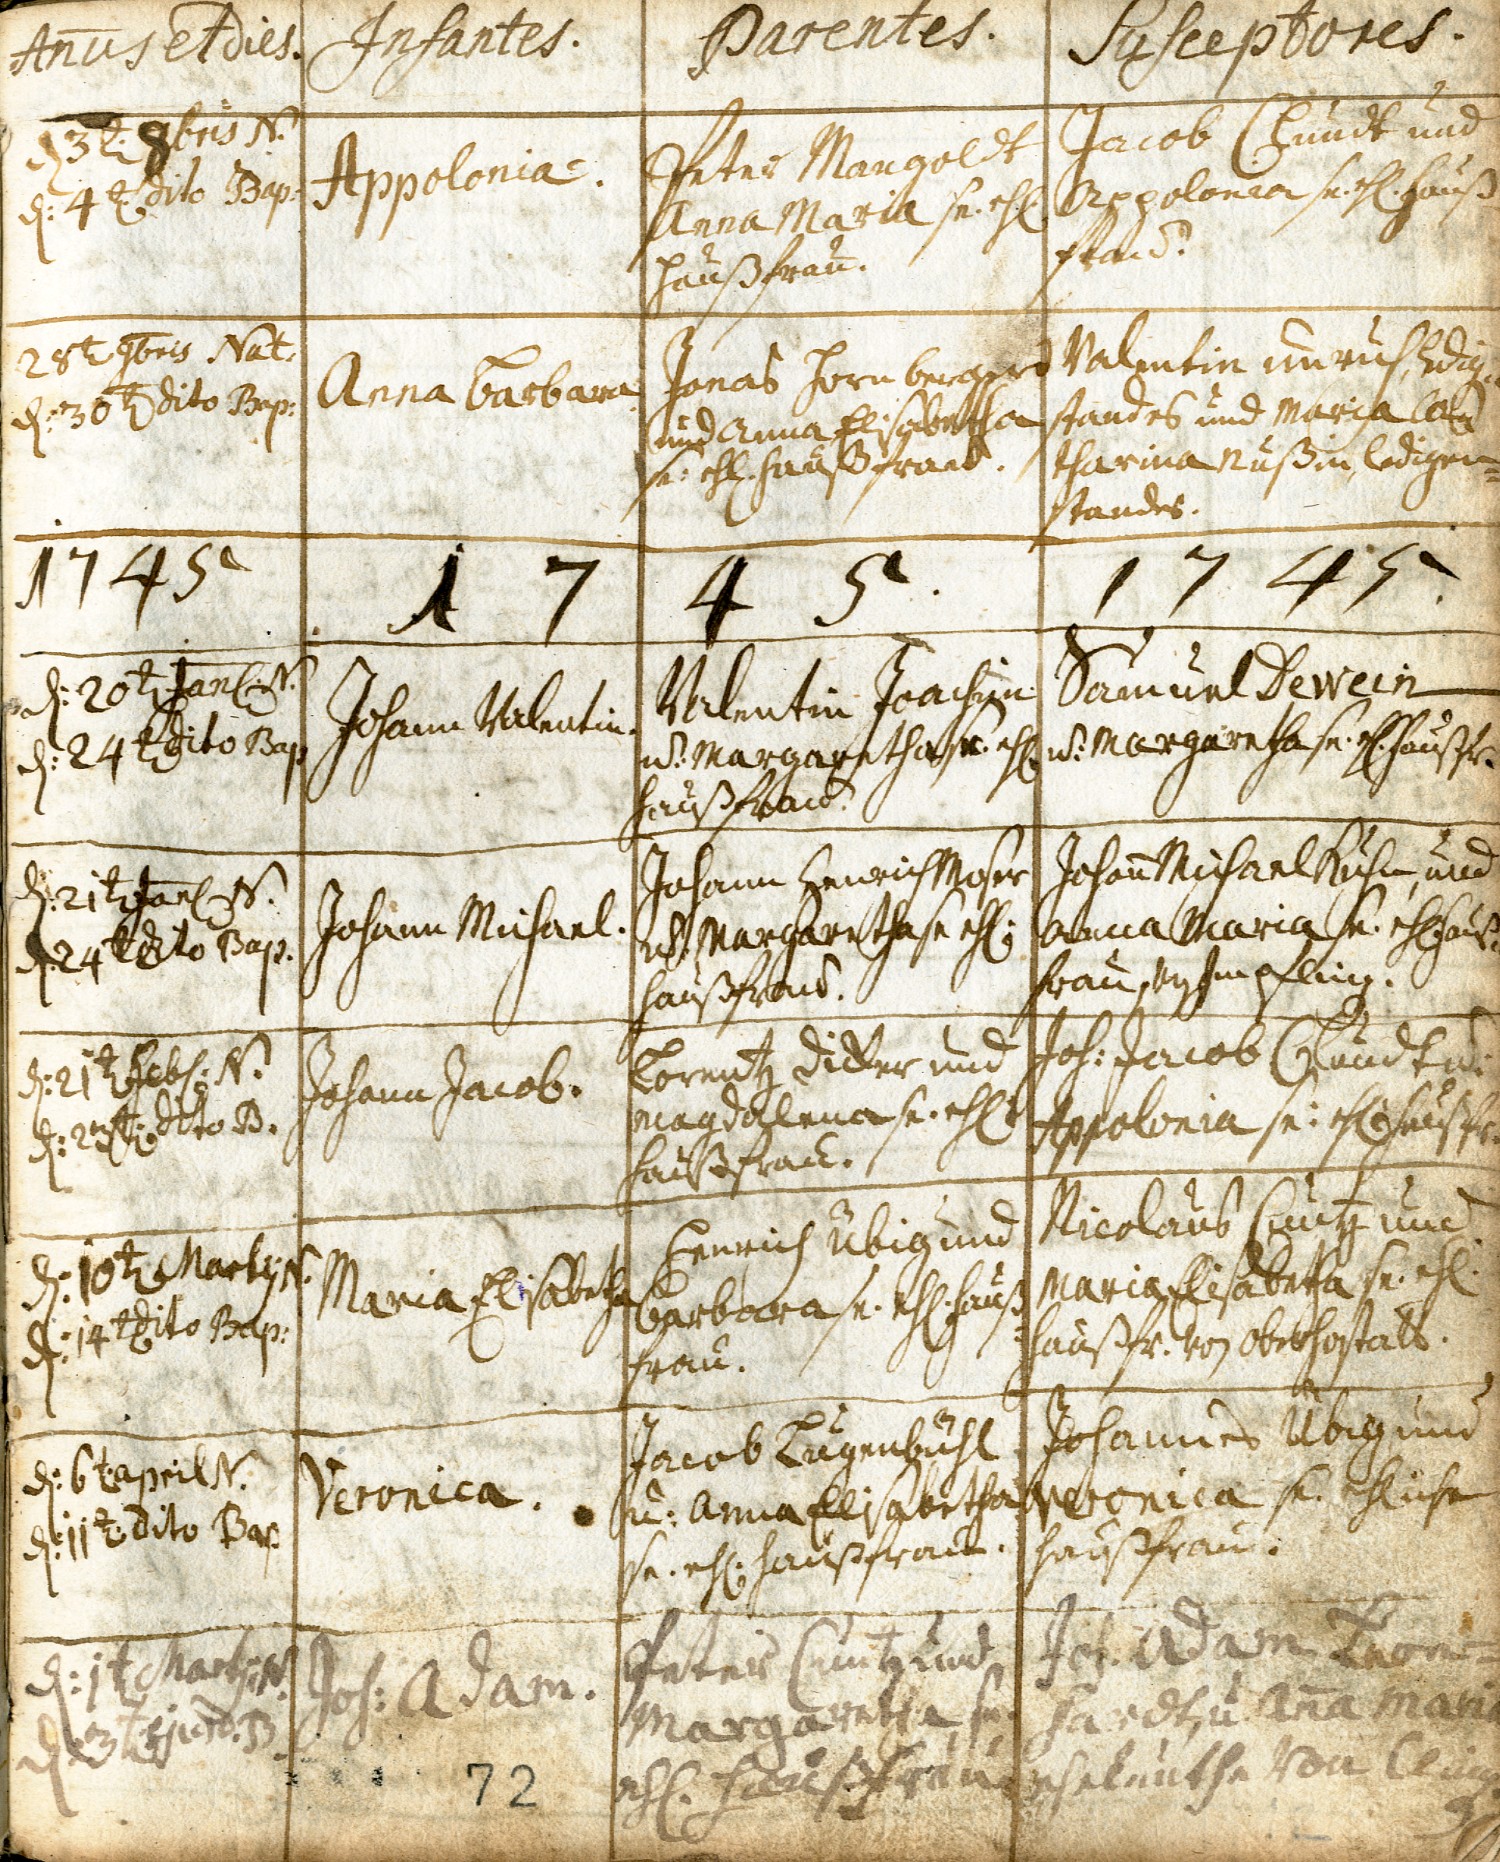 Anus et dies. Infantes. Parentes. Susceptores.
d. 3t. 8bris N.
d: 4t. dito Bap:
Appolonia.
Peter Mangoldt
Anna Maria se. ehl.
haußfrau.
Jacob Chundt und
Appolonia se. ehl. hauß
frau.
28t. 9bris Nat.
d: 30t. dito Bap:
Anna barbara
Jonas Hornberger
und Anna Elisabetha
se. ehl. haußfrau.
Valentin unruh, ledig.
standes und Maria Ca
tharina Nußin, ledigen
standes.
1745 1 7 4 5. 1745.
d: 20t. Jan. N.
d: 24t. dito Bap
Johann Valentin.
Valentin Joachim
u. Margaretha se. ehl.
haußfrau.
Samuel Dewein
u. Margaretha se. ehl. haußfr.
d: 21t. Jan. N.
d. 24t. dito Bap.
Johann Michael.
Johann Henrich Moser
u. Margaretha se ehl.
haußfrau.
Johann Michael Kuhn, und
anna Maria se. ehl. hauß
frau, von Impfling.
d: 21t. Feb. N.
d: dito B.
Johann Jacob.
Lorentz Dicker und
Magdalena se. ehl.
haußfrau.
Joh: Jacob Chundt u:
Appolonia se: ehl. haußfr.
d: 10t. Martij N.
d: 14t. dito Bap:
Maria Elisabetha
Henrich Übig und
barbara se. ehl. hauß
frau.
Nicolaus Cuntz und
Maria Elisabetha se. ehl.
haußfr. von oberhofstatt.
d: 6t. april N.
d: 11t. dito Bap.
Veronica.
Jacob Lugenbühl
u: Anna Elisabetha
se. ehl. haußfrau.
Johannes Übig und
Veronica se. ehliche
haußfrau.
d: 1t. Martij N.
d: 3t. ejusd. B.
Joh: Adam.
Peter Cuntz und
Margaretha, se:
ehl. haußfrau
Joh. Adam Leon=
hardt, u. Ana Maria
eheleuthe von
72